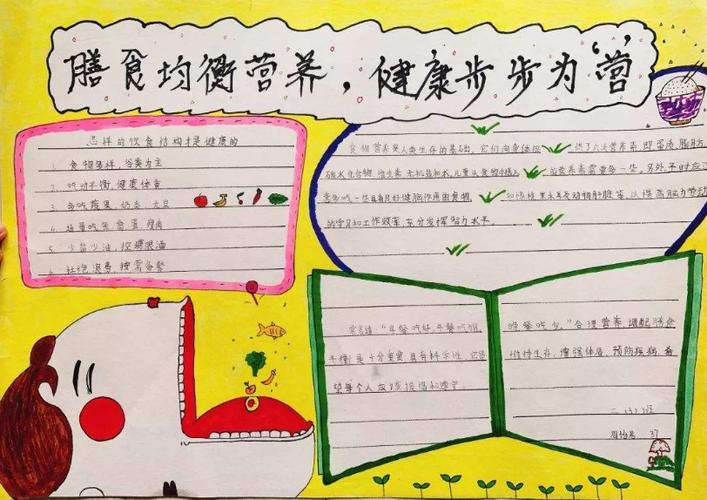 膳食均衡营养，健康步步为“营”
怎样的饮食结构才是健康的
1. 食物多样，谷类为主
2. 吃动平衡，健康体重
3. 多吃蔬果、奶类、大豆
4. 适量吃鱼、禽、蛋、瘦肉
5. 少盐少油，控糖限酒
6. 杜绝浪费，
食物营养是人类生存的基础，它们向身体提供了六大营养素，即蛋白质、脂肪、
碳水化合物、维生素、无机盐和水，儿童从食物中摄入的营养素需要多一些，另外，平时应了
意多吃一些具有良好健脑作用的食物，
的学习和工作效率，充分发挥智力水平。
常言道：“早餐吃好，午餐吃饱，
平衡是十分重要，具有科学性，它
望每个人应该
晚餐吃少。”合理营养，调配膳食
维持生存，增强体质，预防疾病，着
二（3）班
37